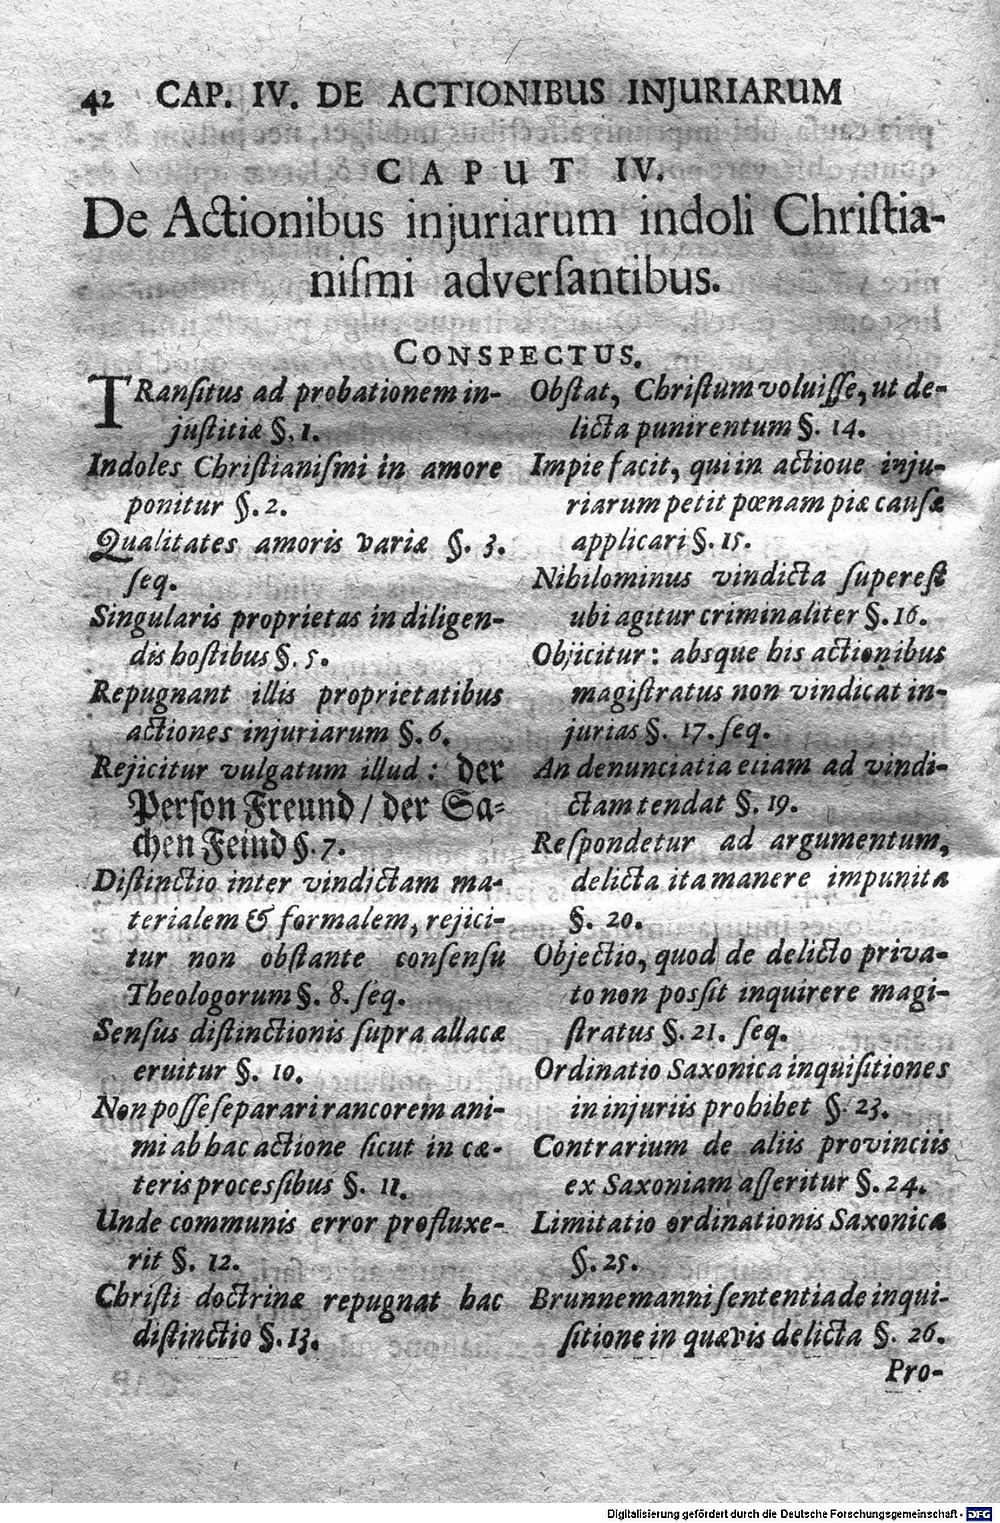 42 CAP. IV. DE ACTIONIBUS INJURIARUM
CAPUT IV.
De Actionibus injuriarum indoli Chriſtia-
niſmi adverſantibus.
CONSPECTUS.
TRanſitus ad probationem in-
juſtitiæ §. 1.
Indoles Chriſtianiſmi in amore
ponitur §. 2.
Qualitates amoris variæ §. 3.
ſeq.
Singularis proprietas in diligen-
dis hoſtibus §. 5.
Repugnant illis proprietatibus
actiones injuriarum §. 6.
Rejicitur vulgatum illud: der
Perſon Freund / der Sa-
chen Feind §. 7.
Diſtinctio inter vindictam ma-
terialem & formalem, rejici-
tur non obſtante conſenſu
Theologorum §. 8. ſeq.
Senſus diſtinctionis ſupra allacæ
eruitur §. 10.
Non poſſe ſeparari rancorem ani-
mi ab hac actione ſicut in cæ-
teris procesſibus §. 11.
Unde communis error profluxe-
rit §. 12.
Chriſti doctrinæ repugnat hac
diſtinctio §. 13.
Obſtat, Chriſtum voluiſſe, ut de-
licta punirentum §. 14.
Impie facit, qui in actioue inju-
riarum petit pœnam piæ cauſæ
applicari §. 15.
Nihilominus vindicta ſupereſt
ubi agitur criminaliter §. 16.
Objicitur: absque his actionibus
magiſtratus non vindicat in-
jurias §. 17. ſeq.
An denunciatia etiam ad vindi-
ctam tendat §. 19.
Reſpondetur ad argumentum,
delicta ita manere impunita
§. 20.
Objectio, quod de delicto priva-
to non poſſit inquirere magi-
ſtratus §. 21. ſeq.
Ordinatio Saxonica inquiſitiones
in injuriis prohibet §. 23.
Contrarium de aliis provinciis
ex Saxoniam aſſeritur §. 24.
Limitatio ordinationis Saxonicæ
§. 25.
Brunnemanni ſententia de inqui-
ſitione in quævis delicta §. 26.
Pro-
Digitalisierung gefördert durch die Deutsche Forschungsgemeinschaft - DFG